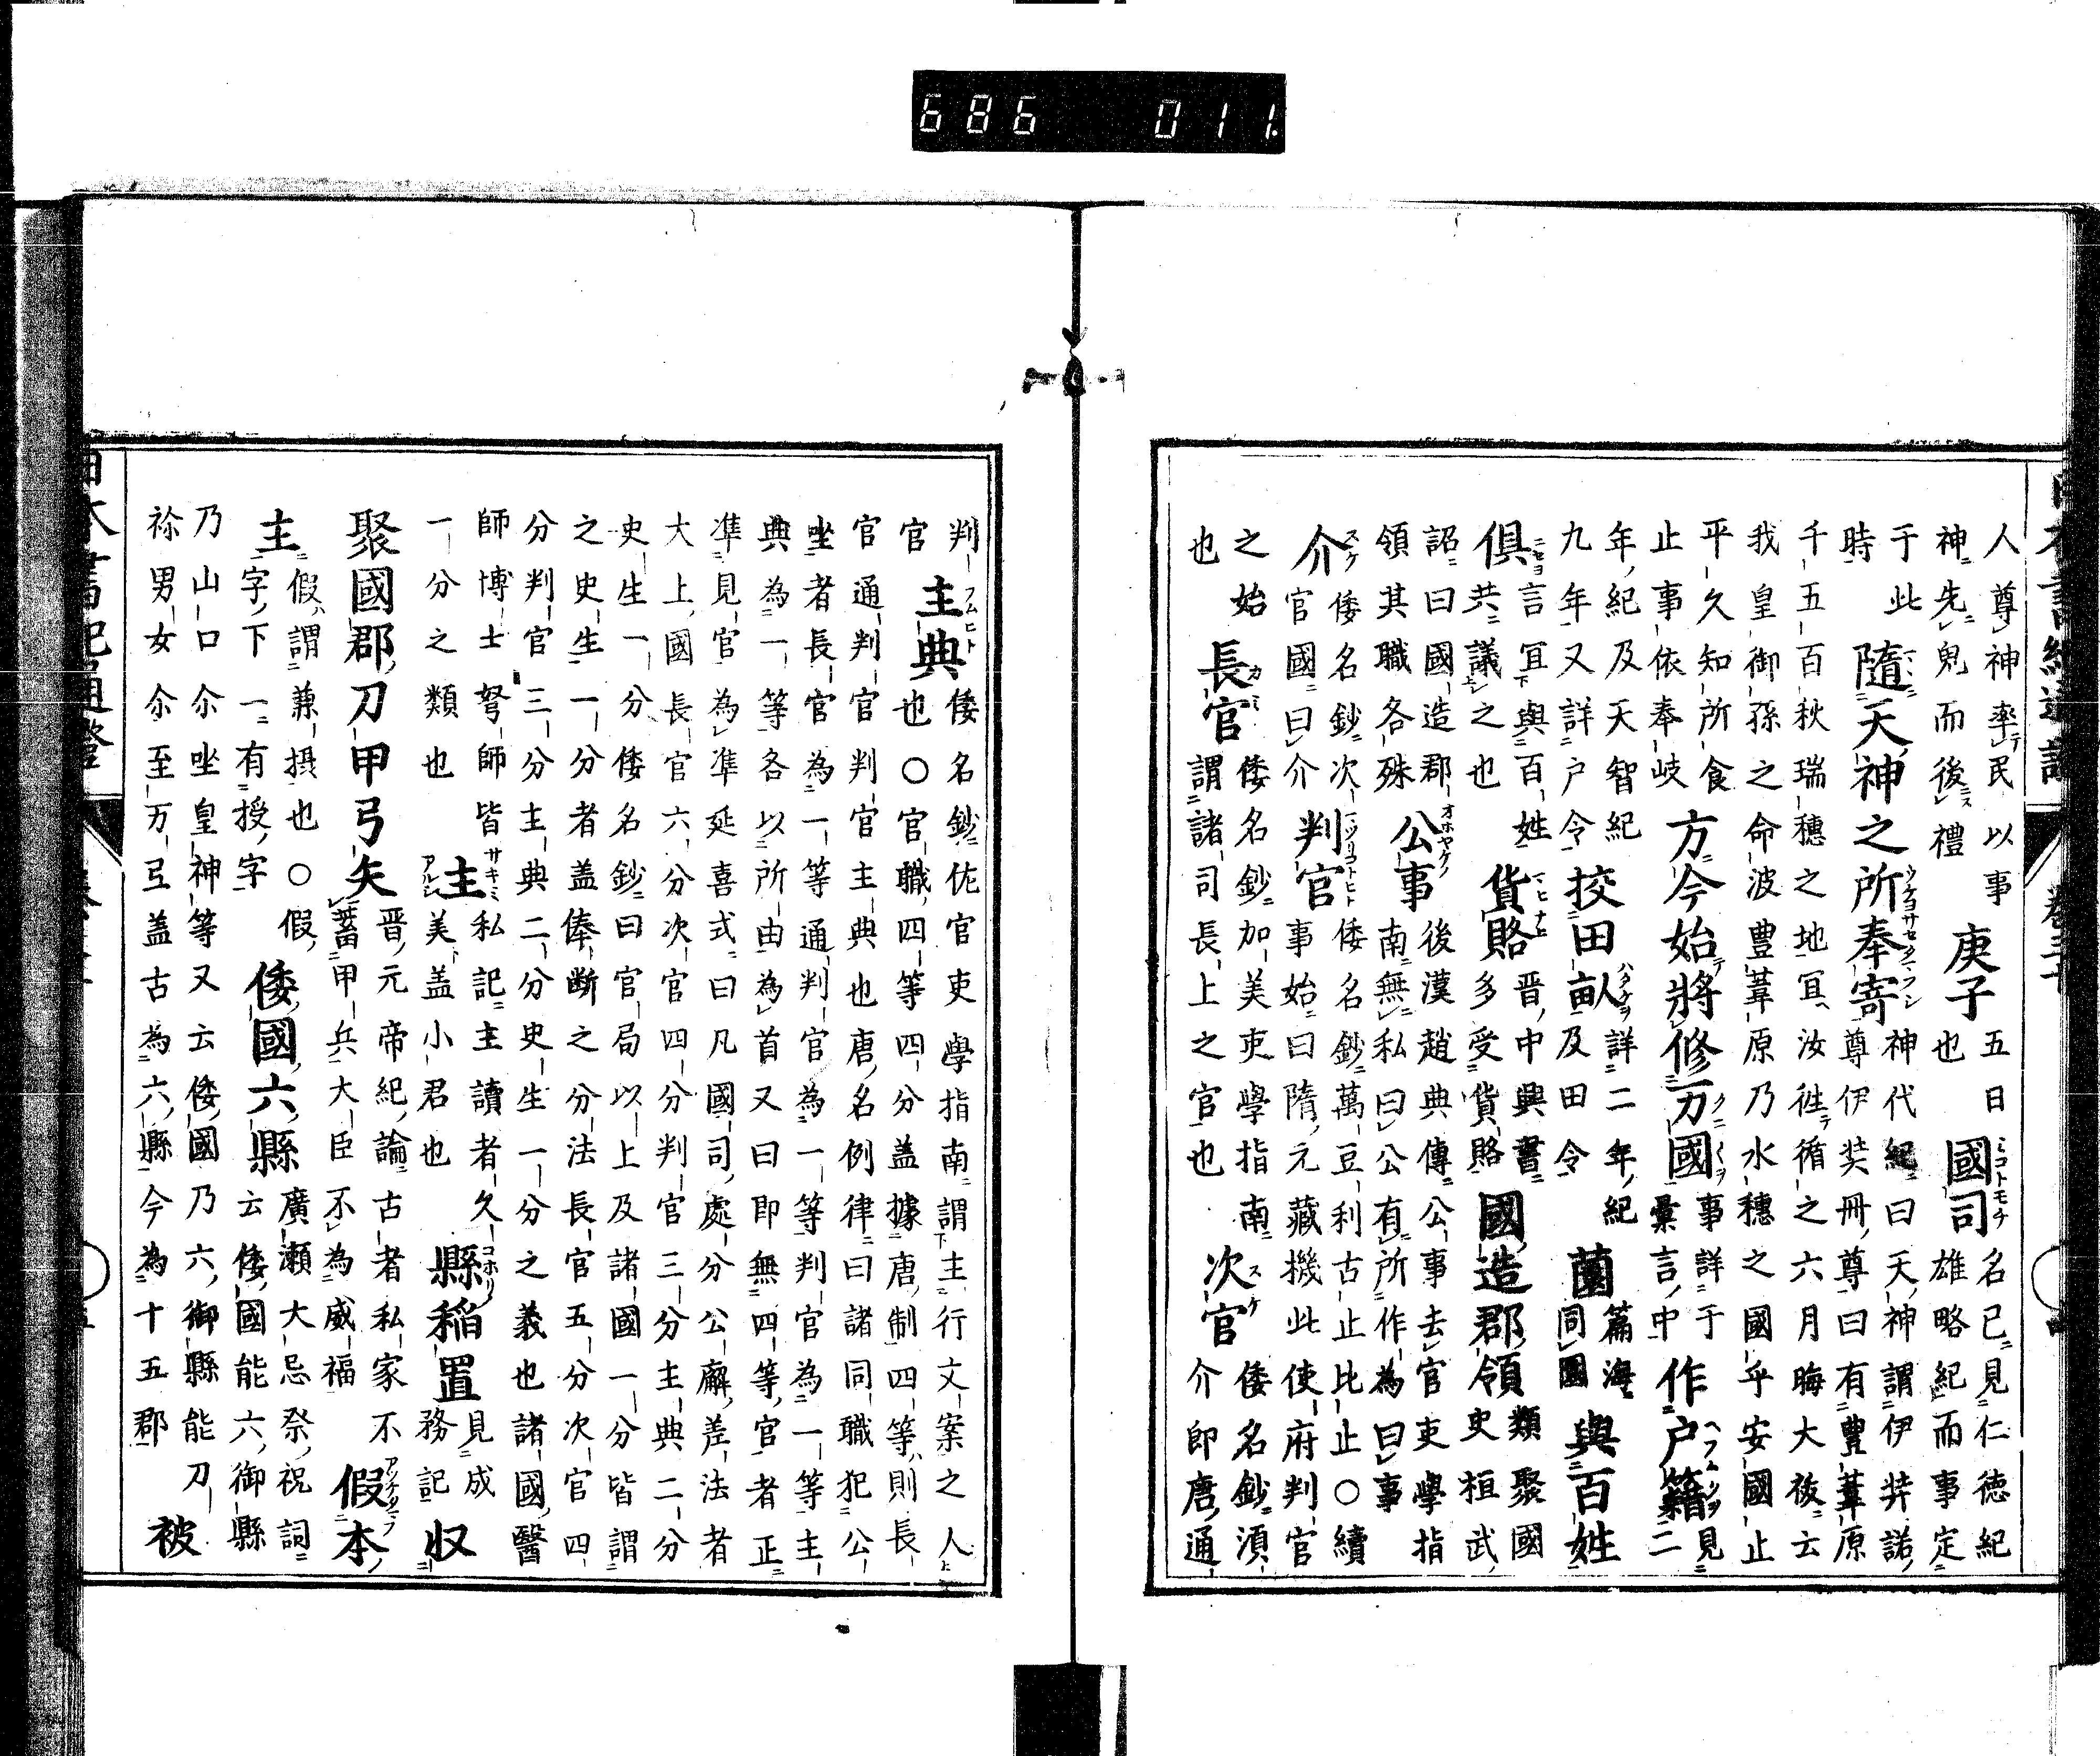 人尊神率民以事
神先鬼而後禮
庚子
五日
也
國司
名已見仁徳紀
雄略紀而事定
于此
時
隨天神之所奉寄
神代紀曰天神謂伊弉諾
尊伊弉冊尊曰有豊葦原
千五百秋瑞穗之地宜汝徃循之六月晦大祓云
我皇御孫之命波豊葦原乃水穗之國乎安國止
平久知所食
止事依奉岐
方今始將修万國
事詳于
彙言中
作户籍
見
二
年紀及天智紀
九年又詳户令
挍田畝
詳二年紀
及田令
薗
篇海
同園
與百姓
俱
言宜與百姓
共議之也
貨賂
晋中興書
多受貨賂
國造郡領
類聚國
史桓武
詔曰國造郡
領其職各殊
公事
後漢趙典傳公事去官吏學指
南無私曰公有所作為曰事
介
倭名鈔次
官國曰介
判官
倭名鈔萬豆利古止比止○續
事始曰隋元藏機此使府判官
之始
也
長官
倭名鈔加美吏學指南
謂諸司長上之官也
次官
倭名鈔須
介即唐通
判
官
主典
倭名鈔佐官吏學指南謂主行文案之人
也○官職四等四分盖據唐制四等則長
官通判官判官主典也唐名例律曰諸同職犯公
坐者長官為一等通判官為一等判官為一等主
典為一等各以所由為首又曰即無四等官者正
準見官為準延喜式曰凡國司處分公廨差法者
大上國長官六分次官四分判官三分主典二分
史生一分倭名鈔曰官局以上及諸國一分皆謂
之史生一分者盖俸断之分法長官五分次官四
分判官三分主典二分史生一分之義也諸國醫
師博士弩師皆
一分之類也
主
私記主讀者久
美盖小君也
縣稲置
見成
務記
収
聚國郡刀甲弓矢
晋元帝紀論古者私家不
蓄甲兵大臣不為威福
假本
主
假謂兼摂也○假
字下一有授字
倭國六縣
廣瀬大忌祭祝詞
云倭國能六御縣
乃山口尓坐皇神等又云倭國乃六御縣能刀
祢男女尓至万弖盖古為六縣今為十五郡
被
686 011